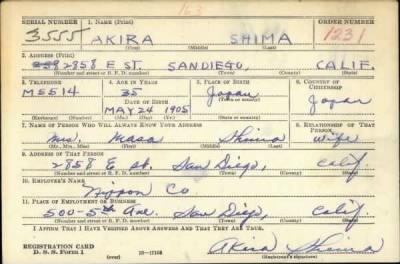 163
SERIAL NUMBER 1. NAME (Print) ORDER NUMBER
3555 AKIRA SHIMA 1231
(First) (Middle) (Last)
2. ADDRESS (Print)
2858 E ST. SANDIEGO, CALIF.
(Number and street or R. F. D. number) (Town) (County) (State)
3. TELEPHONE 4. AGE IN YEARS 5. PLACE OF BIRTH 6. COUNTRY OF CITIZENSHIP
M5514 35 Japan
DATE OF BIRTH (Town or county)
MAY 24 1905 Japan
(Exchange) (Number) (Mo.) (Day) (Yr.) (State or country)
7. NAME OF PERSON WHO WILL ALWAYS KNOW YOUR ADDRESS 8. RELATIONSHIP OF THAT PERSON
Mrs. Masa Shima Wife
(Mr., Mrs., Miss) (First) (Middle) (Last)
9. ADDRESS OF THAT PERSON
2858 E st. San Diego, Calif
(Number and street or R. F. D. number) (Town) (County) (State)
10. EMPLOYER'S NAME
Nippon Co
11. PLACE OF EMPLOYMENT OR BUSINESS
500-5th Ave. San Diego, Calif.
(Number and street or R. F. D. number) (Town) (County) (State)
I AFFIRM THAT I HAVE VERIFIED ABOVE ANSWERS AND THAT THEY ARE TRUE.
REGISTRATION CARD
D. S. S. Form 1 (over) Akira Shima
(Registrant's signature)